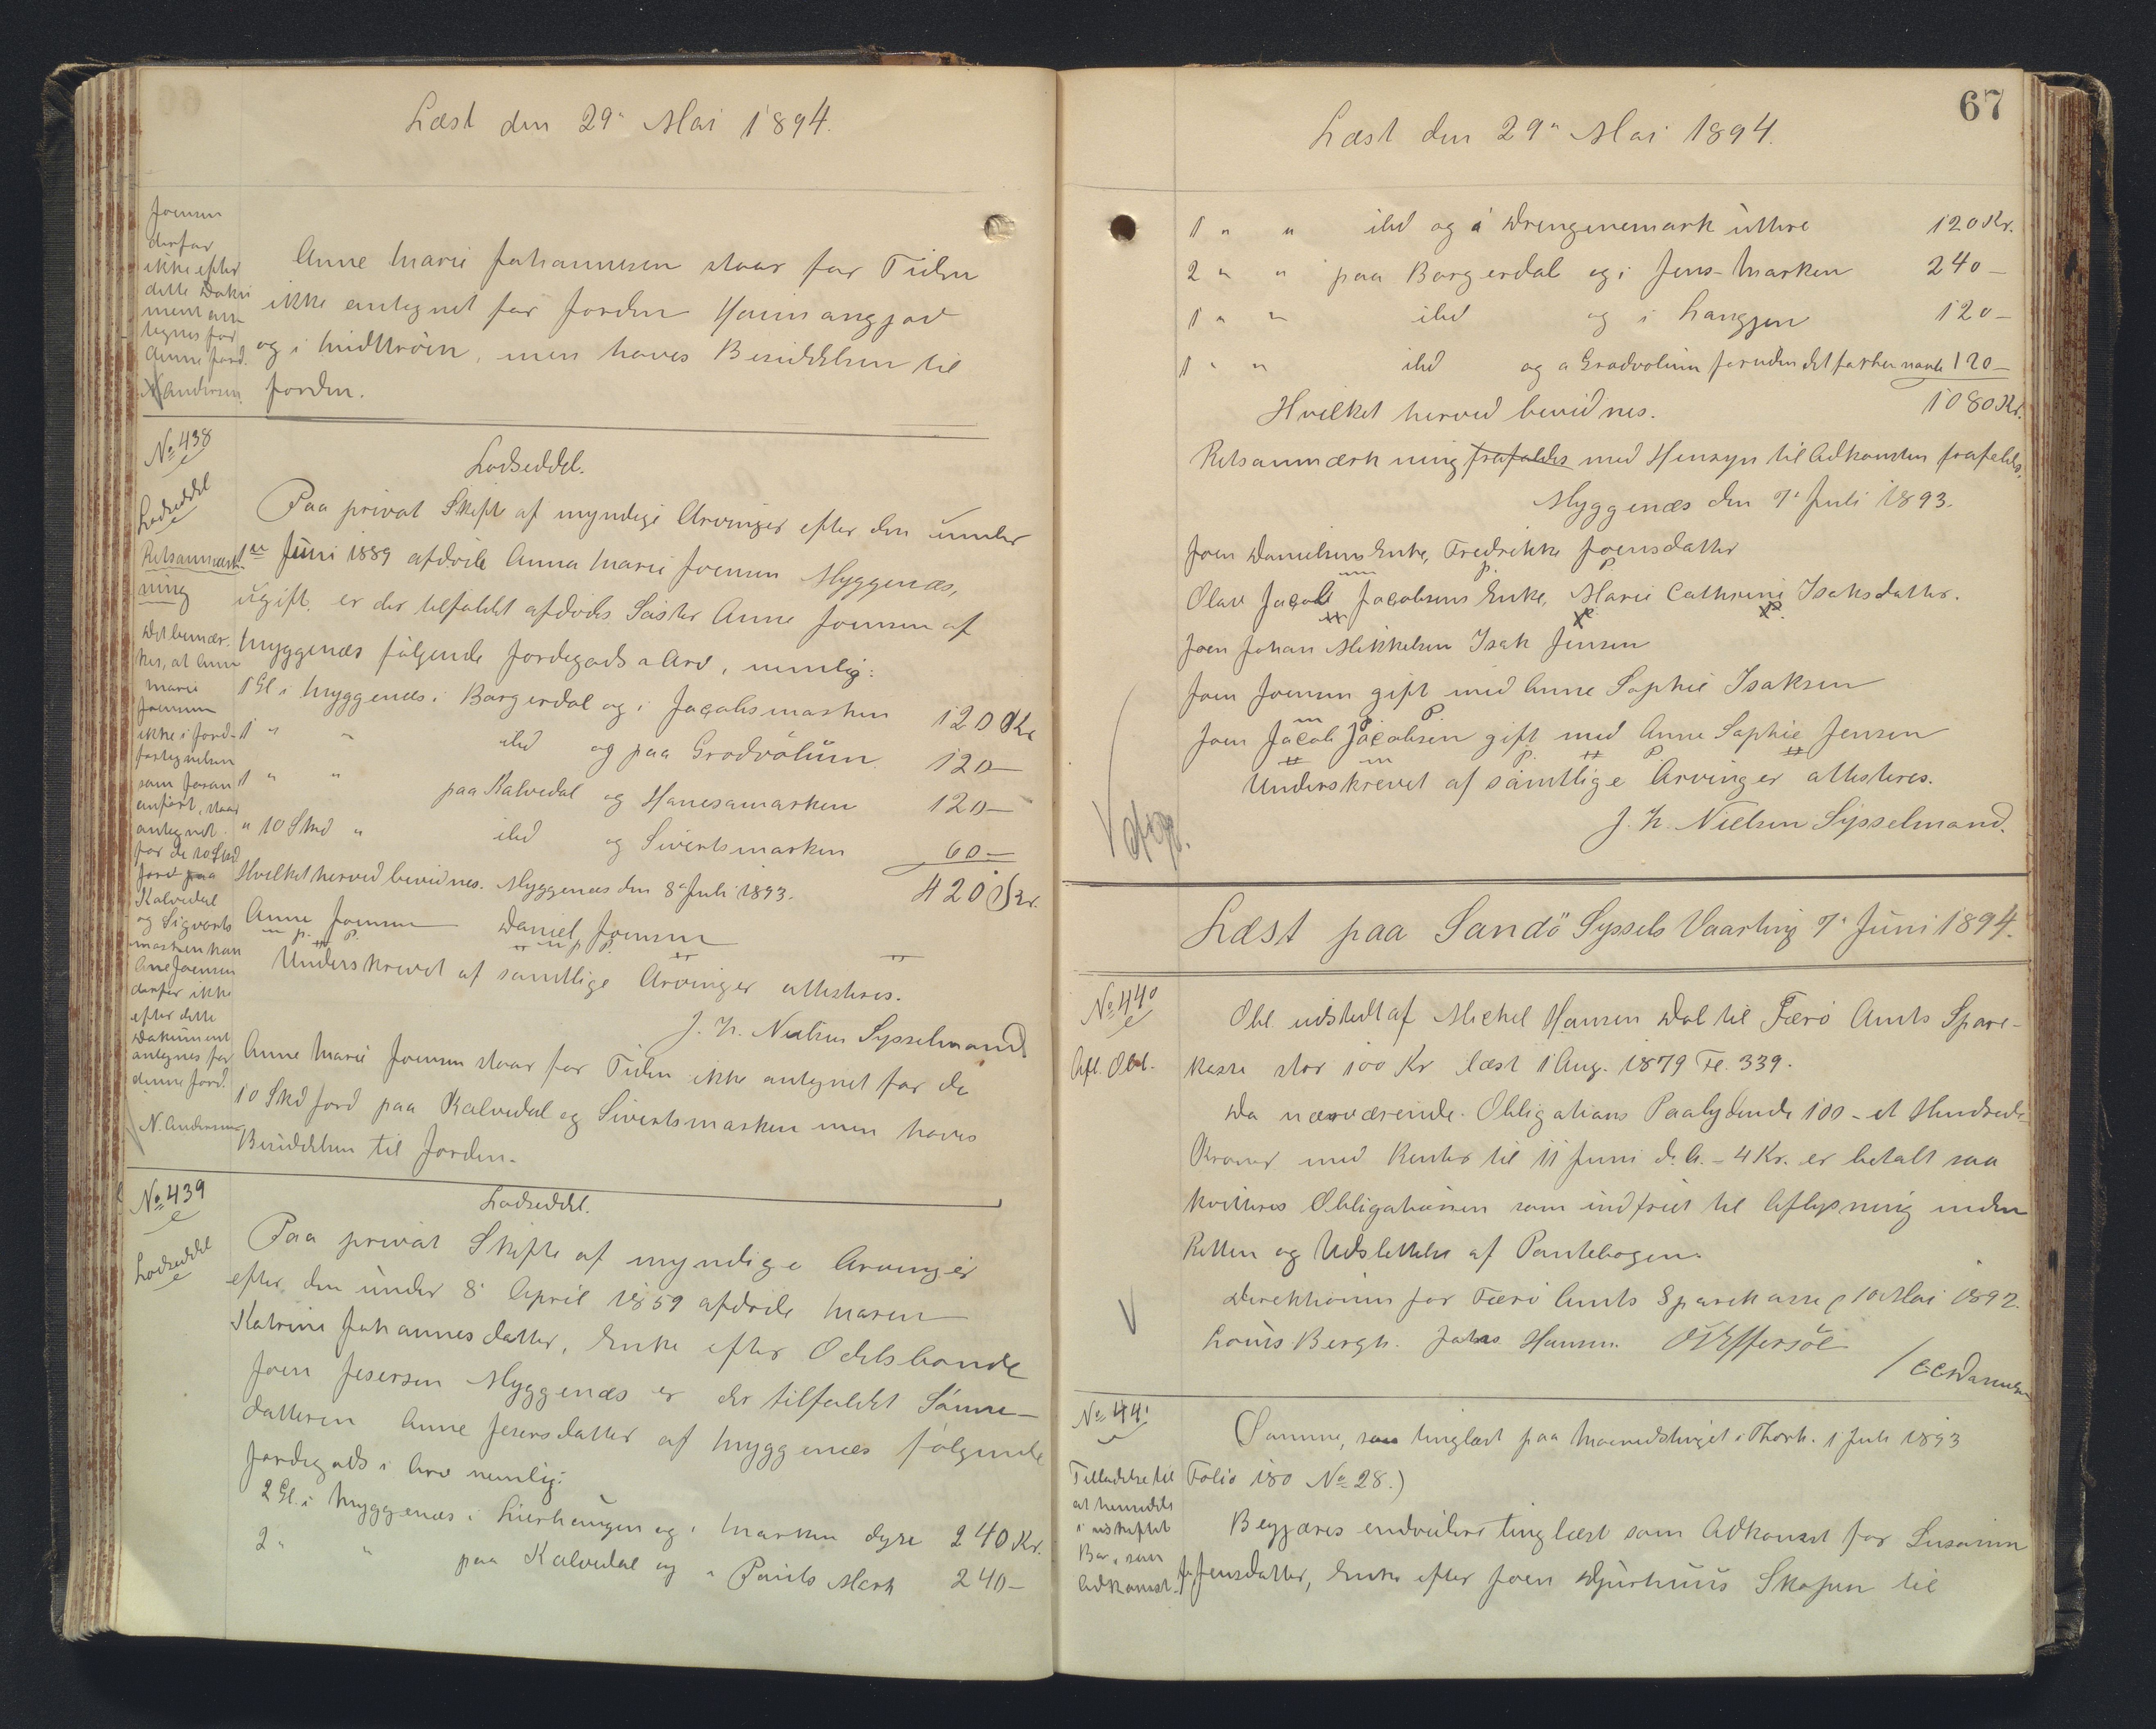 Læst den 29' Mai 1894.
Joensen
derfor
ikke efter
dette Doku
ment an-
tegnes for
denne Jord.
N Andersen.
Anne Marie Johannesen staar for Tiden
ikke antegnet for Jorden
og i Midttröen, men haves Besiddelsen til
Jorden.
No 438
Lodseddel
Lodseddel.
Paa privat Skifte af myndige Arvinger efter den under
1ste Juni 1889 afdöde Anna Marie Joensen Myggenæs,
ugift, er der tilfaldet afdödes Söster Anne Joensen af
Myggenæs fölgende Jordegods i Arv, nemlig:
1 Gl i Myggenæs i Borgerdal og i Jacobsmarken 120 Kr
1 " " ibid og paa Grodvölum 120 –
1 " " paa Kalvedal og Hanesamarken 120 –
" 10 Skd " ibid og Sivertsmarken 60 –
Hvilket herved bevidnes. Myggenæs den 8' Juli 1893. 420 Kr.
Anne Joensen Daniel Joensen
m. p. P. m p P.
Underskrevet af samtlige Arvinger attesteres.
J. H. Nielsen Sysselmand
Anne Marie Joensen staar for Tiden ikke antegnet for de
10 Skd Jord paa Kalvedal og Sivertsmarken men haves
Besiddelsen til Jorden.
Retsanmærk-
ning
Det bemær-
kes, at Anne
Marie
Joensen
ikke i Jord-
fortegnelsen
som foran
anfört, staar
antegnet
for de 10 Skd
Jord paa
Kalvedal
og Sigverts
marken kan
Ane Joensen
derfor ikke
efter dette
Dokument
antegnes for
denne Jord.
N. Andersen
No 439
Lodseddel
Lodseddel.
Paa privat Skifte af myndige Arvinger
efter den under 8' April 1859 afdöde Maren
Katrine Johannesdatter, Enke efter Odelsbonde
Joen Jesersen Myggenæs er der tilfaldet Sönne-
datteren Anne Jesersdatter af Myggenæs fölgende
Jordegods i Arv nemlig:
2 Gl. i Myggenæs i Lierheugen og i Marken dyre 240 Kr.
2 " " paa Kalvedal og i Pouls Mark 240 –
67
Læst den 29' Mai 1894.
1 " " ibid og i Drengenemark uttere 120 Kr.
2 " " paa Borgerdal og i Jens-Marken 240 –
1 " " ibid og i Langjen 120 –
1 " " ibid og a Grodvolum foruden det forhen nævnte 120 –
Hvilket herved bevidnes. 1080 Kr.
Retsanmærkning frafaldes med Hensyn til Adkomsten frafaldes.
Myggenæs den 7' Juli 1893.
Joen Danielsens Enke, Fredrikke Joensdatter
Olave Jacob Jacobsens Enke, Marie Cathrine Isaksdatter.
Joen Johan Mikkelsen Isak Jensen
Joen Joensen gift med Anne Sophie Isaksen
Joen Jacob Jacobsen gift med Anne Sophie Jensen
Underskrevet af samtlige Arvinger attesteres.
J. H. Nielsen Sysselmand.
Læst paa Sandö Syssels Vaarting 7' Juni 1894.
No 440
Afl. Obl.
Obl. udstedt af Michel Hansen Dal til Færö Amts Spare-
kasse stor 100 Kr læst 1 Aug. 1879 Fl. 339.
Da nærværende Obligations Paalydende 100 – et Hundrede
Kroner med Renter til 11 Juni d. A. – 4 Kr. er betalt saa
kvitteres Obligationen som indfriet til Aflysning inden
Retten og Udslettelse af Pantebogen.
Direktionen for Færö Amts Sparekasse p 10 Mai 1892.
Louis Bergh. Johs Hansen. O Effersöe
/ C C Danielsen
No 441
Tilladelse til
at hensidde
i uskiftet
Bo, som
Adkomst.
(Samme, saa tinglæst paa Maanedstinget i Thorh. 1 Juli 1893
Folio 180 No 28.)
Begjæres endvidere tinglæst som Adkomst for Susanne
Jensdatter, Enke efter Joen Djurhuus Skopen til